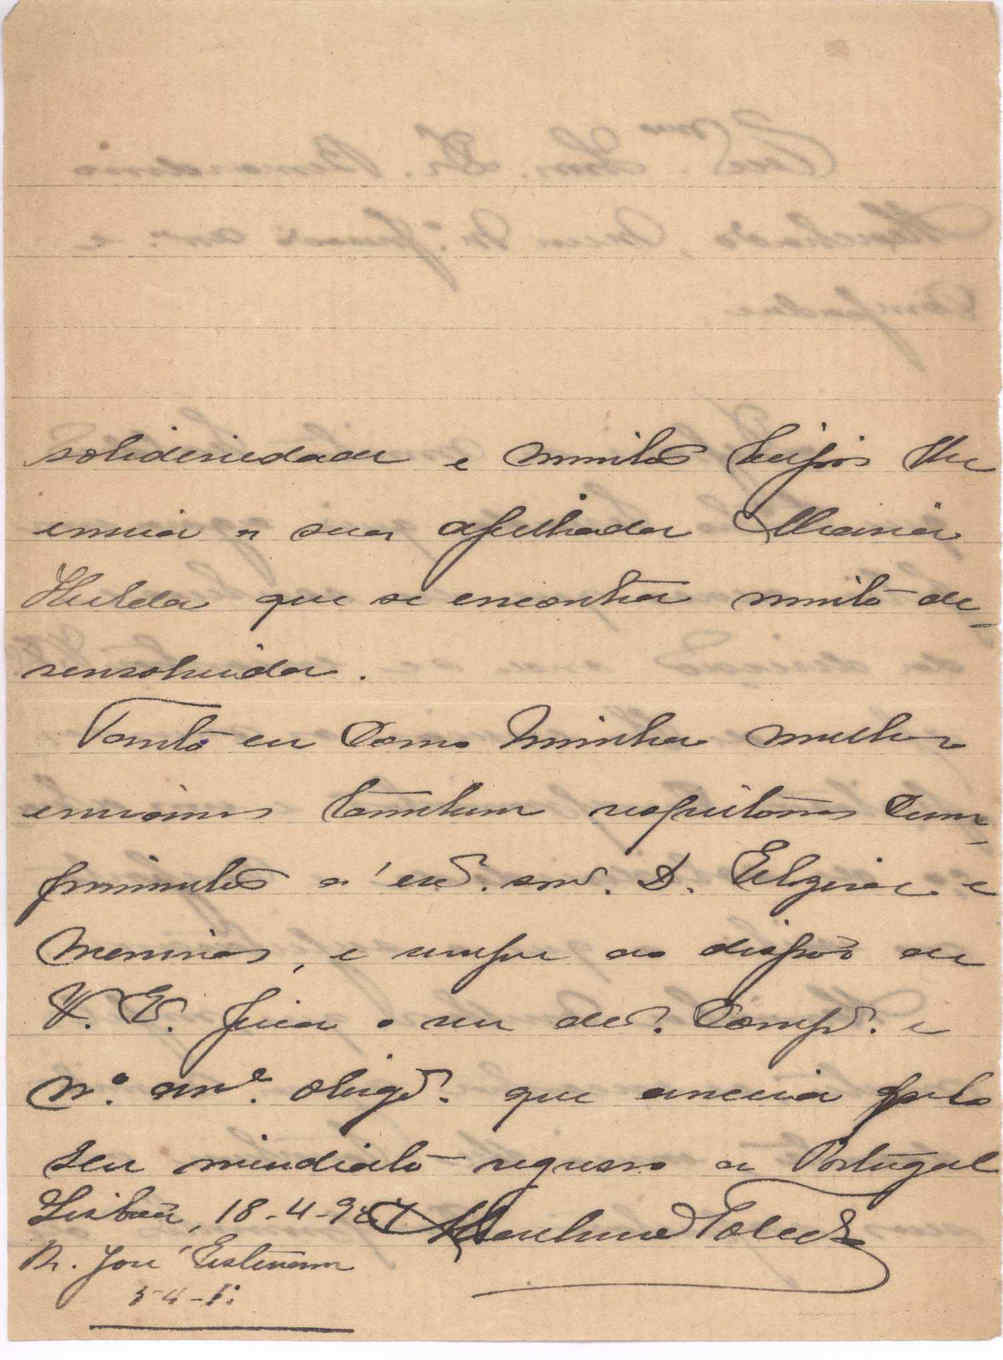 solideriedade e muitos beijos lhe
envia a sua afilhada Maria
Hulda que se encontra muito de-
senvolvida.
Tanto eu como minha mulher
enviamos tambem respeitosos cum-
primentos a' exª. snrª. D. Elzira e
meninas, e sempre ao dispôr de
V. Exª. fica o seu dedº. compº. e
mº. amº. obrigdº. que anceia pelo
seu imediato regresso a Portugal
Lisboa, 18-4-927
R. José Estevam
54-1º